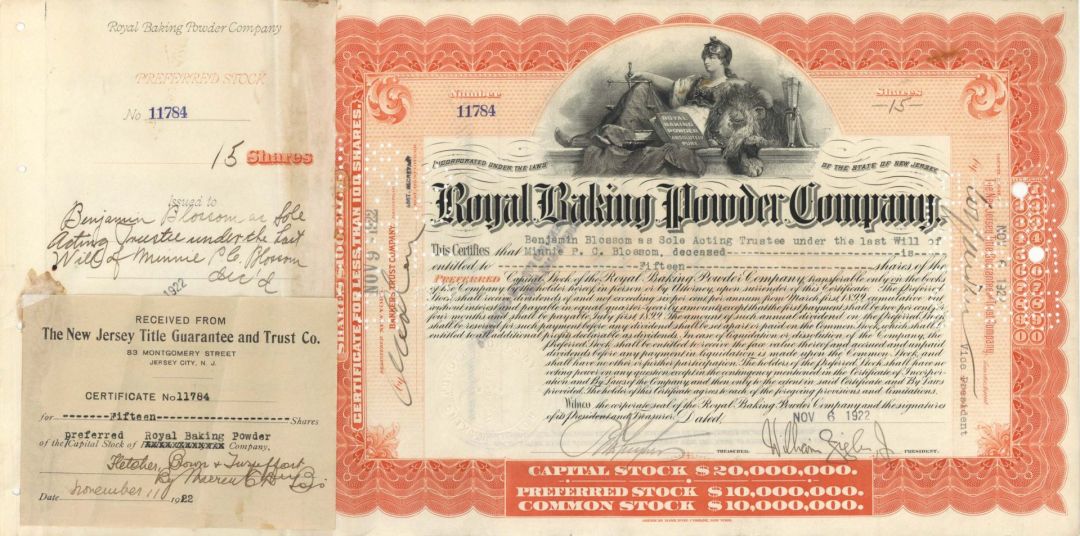 Royal Baking Powder Company
PREFERRED STOCK
No 11784
15 Shares
Issued to
Benjamin Blossom as Sole
Acting Trustee under the Last
Will of Minnie P.C. Blossom
dec'd
1922
RECEIVED FROM
The New Jersey Title Guarantee and Trust Co.
83 MONTGOMERY STREET
JERSEY CITY, N. J.
CERTIFICATE No 11784
for -------Fifteen------------Shares
preferred Royal Baking Powder
of the Capital Stock of XXXXXXXXXXXX Company.
Fletcher,
By
Date November 11 1922
CERTIFICATE FOR LESS THAN 100 SHARES.
Number
11784
Shares
-15-
ROYAL
BAKING
POWDER
ABSOLUTELY
PURE
INCORPORATED UNDER THE LAWS OF THE STATE OF NEW JERSEY.
Royal Baking Powder Company,
This Certifies that Benjamin Blossom as Sole Acting Trustee under the last Will of
Minnie P. C. Blossom, deceased----------------------is----
entitled to --------------Fifteen---------------- shares of the
PREFERRED Capital Stock of the Royal Baking Powder Company, transferable only on the books
of the Company by the holder hereof in person or by Attorney, upon surrender of this Certificate. The Preferred
Stock shall receive dividends of and not exceeding six per cent per annum from March first, 1899, cumulative
and shall be reserved for such payment before any dividend shall be set apart or paid on the Common Stock, which shall be
entitled to all additional profits declarable as dividends. In case of liquidation or dissolution of the Company, the
Preferred Stock shall be entitled to receive the face value thereof and accrued and unpaid
dividends before any payment in liquidation is made upon the Common Stock, and
shall have no other or further participation. The holders of the preferred Stock shall have no
voting power on any question except in the contingency mentioned in the Certificate of Incorpor-
ation and By Laws of the Company and then only to the extent in said Certificate and By Laws
provided. The holder of this Certificate agrees to each of the foregoing provisions and limitations.
Witness the corporate seal of the Royal Baking Powder Company and the signatures
of its President and Treasurer. Dated, NOV 6 1922
TREASURER.
William Ziegler Jr
PRESIDENT.
CAPITAL STOCK $20,000,000.
PREFERRED STOCK $10,000,000.
COMMON STOCK $10,000,000.
AMERICAN BANK NOTE COMPANY, NEW YORK.
NOV 9 1922
BANKERS TRUST COMPANY
ASST. SECRETARY
by
NOV 6 1922
by
Vice President